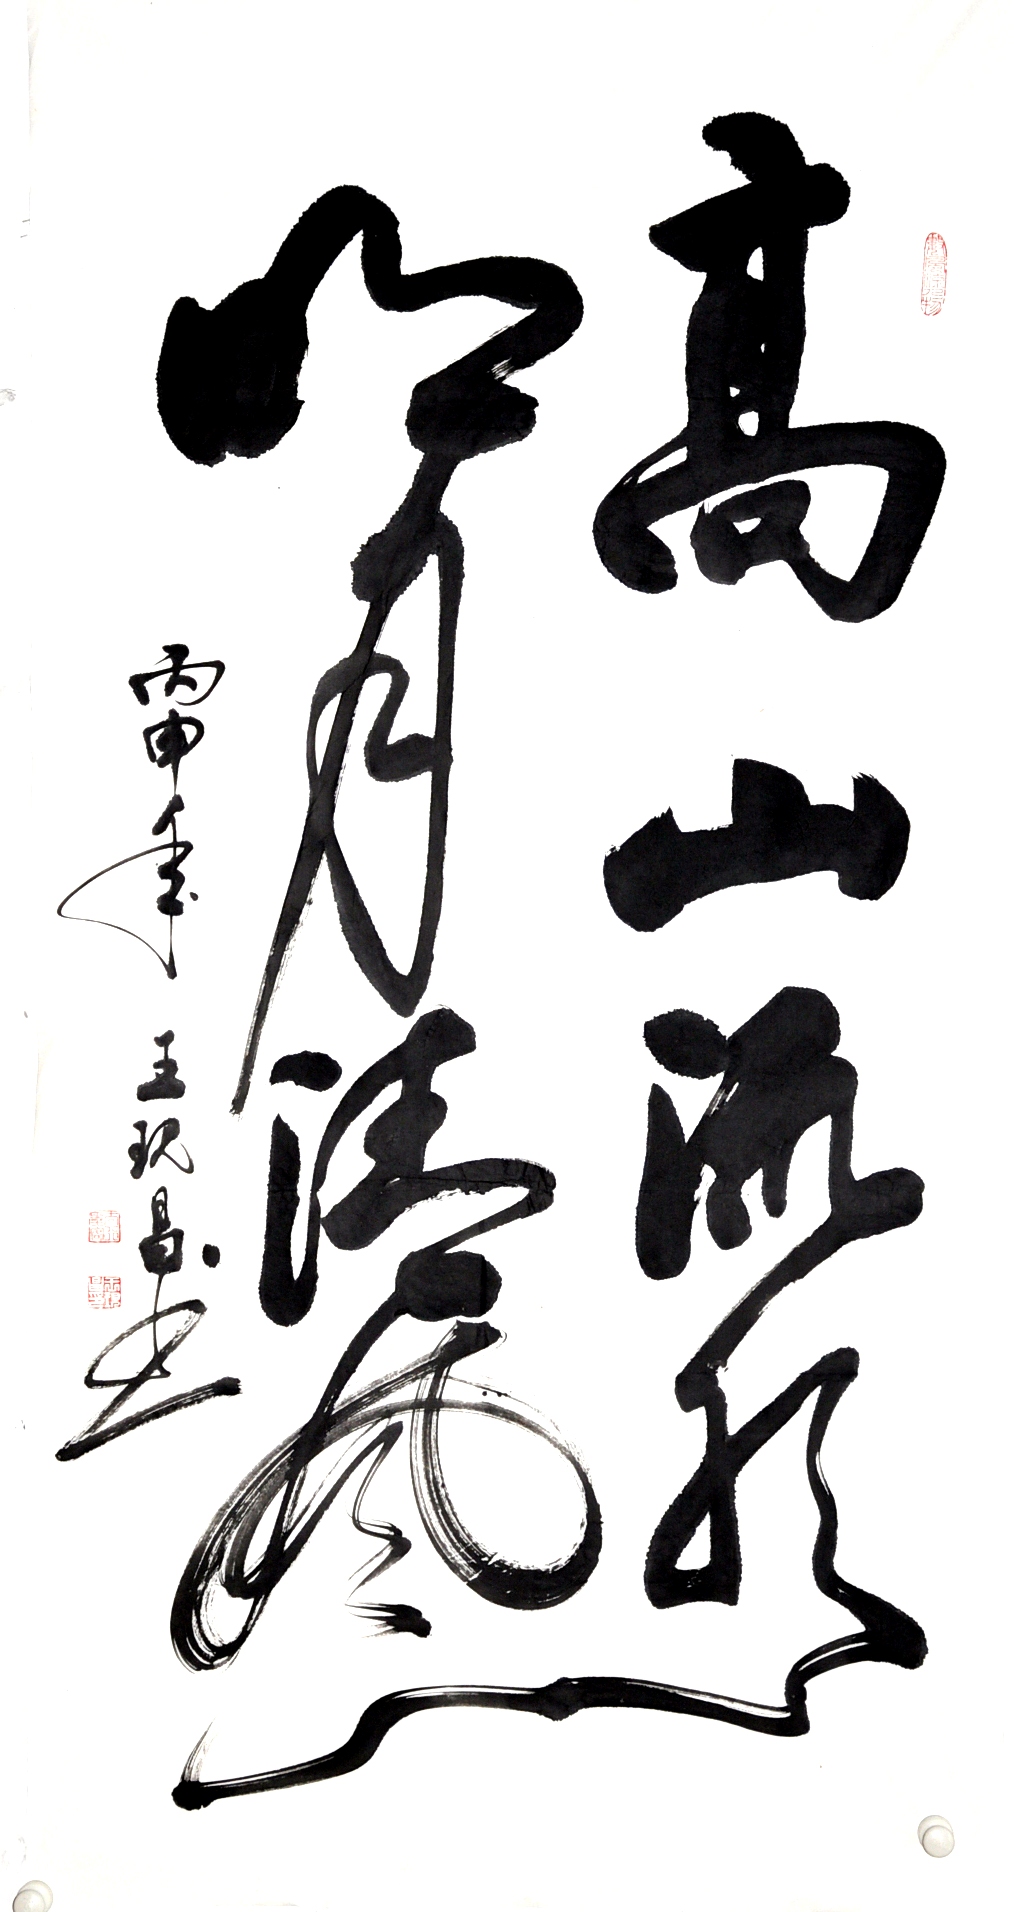 高山流水
明月清风
丙申年 王玑昌书